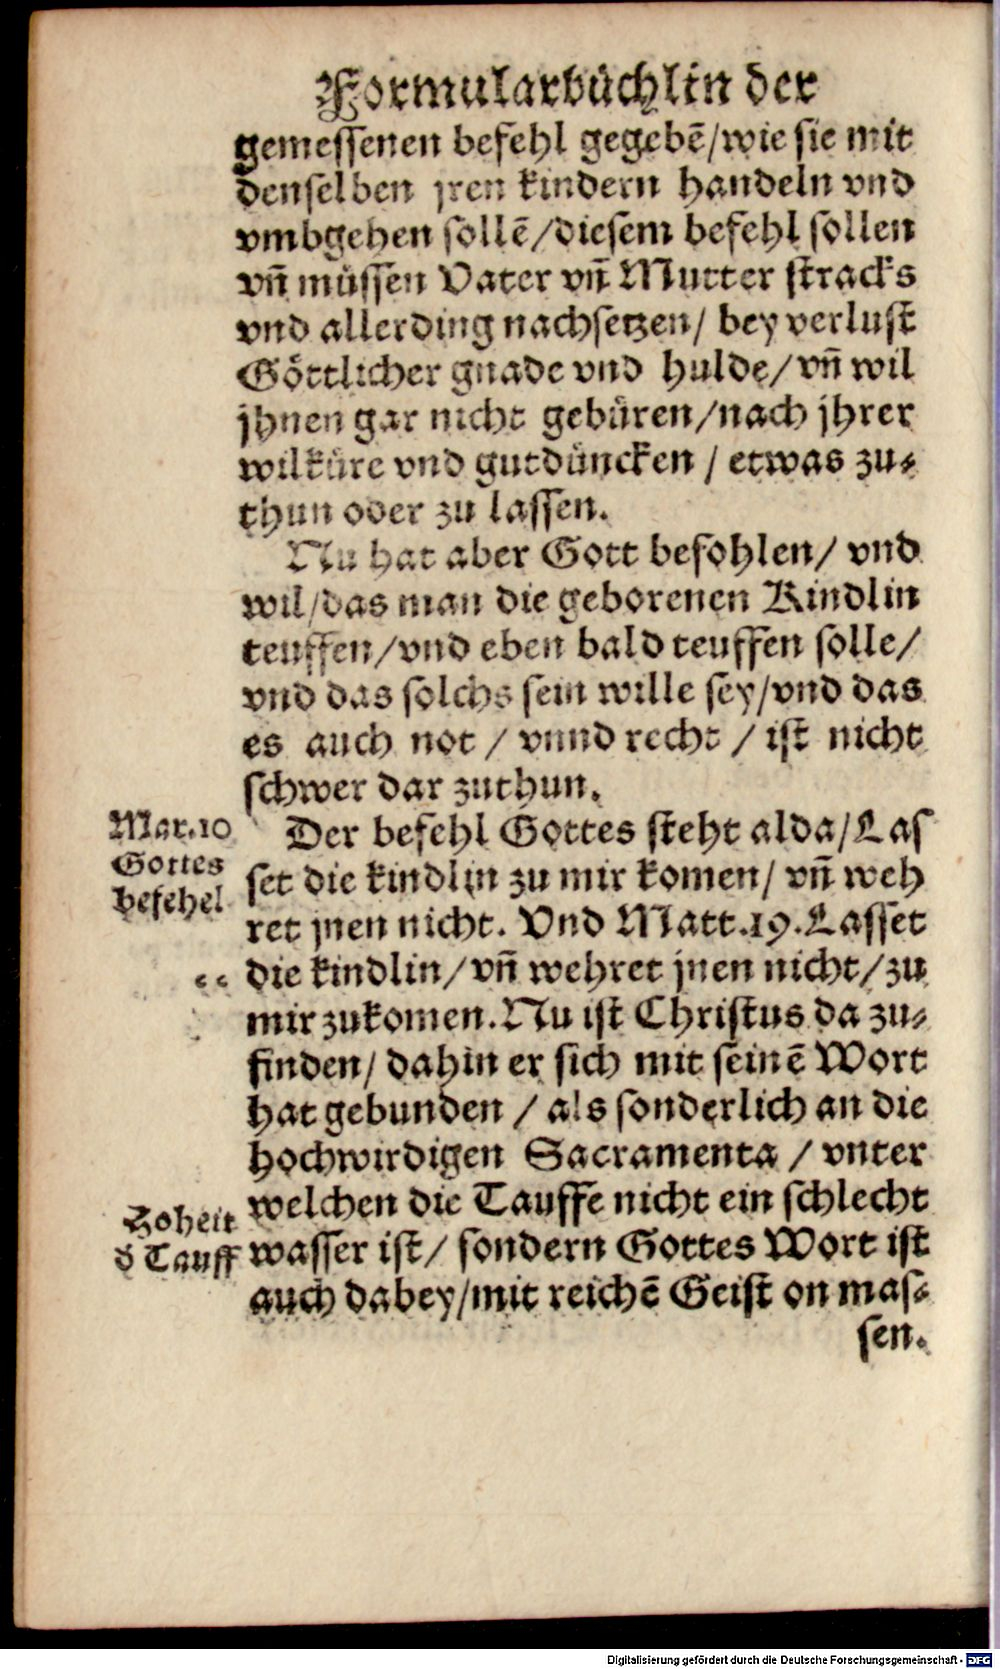 Formularbüchlin der
gemessenen befehl gegebẽ/wie sie mit
denselben jren kindern handeln vnd
vmbgehen sollẽ/diesem befehl sollen
vñ müssen Vater vñ Mutter stracks
vnd allerding nachsetzen/ bey verlust
Göttlicher gnade vnd hulde/ vñ wil
jhnen gar nicht gebüren/nach jhrer
wilküre vnd gutdüncken / etwas zu-
thun oder zu lassen.
Nu hat aber Gott befohlen/ vnd
wil/das man die geborenen Kindlin
teuffen/vnd eben bald teuffen solle/
vnd das solchs sein wille sey/vnd das
es auch not / vnnd recht / ist nicht
schwer dar zuthun.
Mar.10
Gottes
befehel
Der befehl Gottes steht alda/Las
set die kindlin zu mir komen/ vñ weh
ret jnen nicht. Vnd Matt.19.Lasset
die kindlin/vñ wehret jnen nicht/zu
mir zukomen.Nu ist Christus da zu-
finden/ dahin er sich mit seinẽ Wort
hat gebunden / als sonderlich an die
hochwirdigen Sacramenta / vnter
welchen die Tauffe nicht ein schlecht
Hoheit
d̃ Tauff
wasser ist/ sondern Gottes Wort ist
auch dabey/mit reichẽ Geist on mas-
sen.
Digitalisierung gefördert durch die Deutsche Forschungsgemeinschaft - DFG